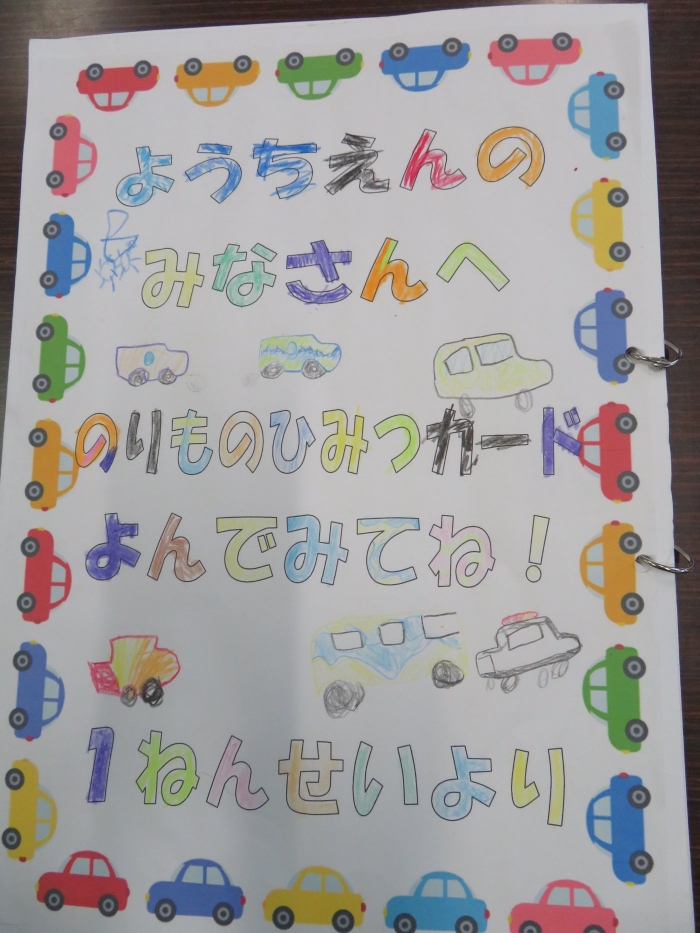 ようちえんの
みなさんへ
のりものひみつカード
よんでみてね！
1ねんせいより